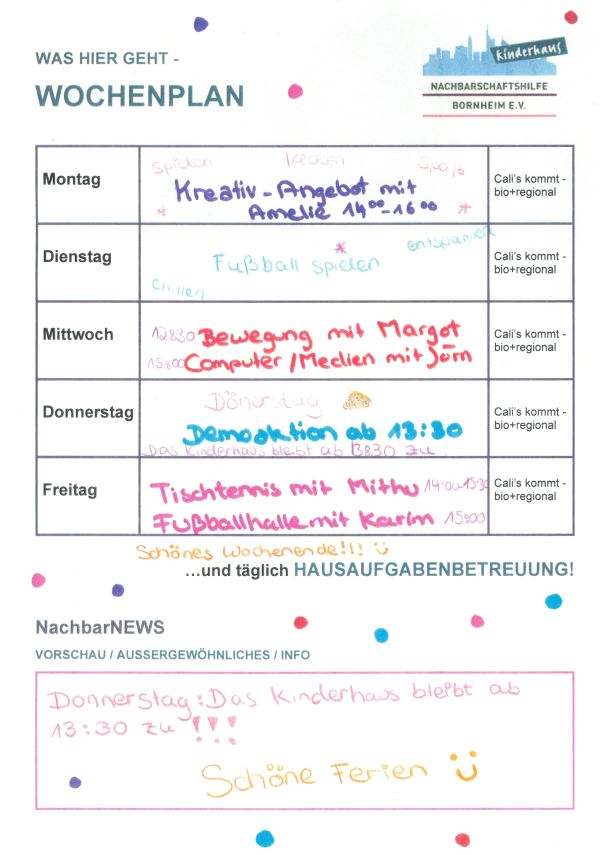 WAS HIER GEHT -
WOCHENPLAN
kinderhaus
NACHBARSCHAFTSHILFE
BORNHEIM E.V.
Montag
spielen kochen Spaß
Kreativ-Angebot mit
Amelie 14⁰⁰-16⁰⁰
Cali's kommt -
bio+regional
Dienstag
entspannen
Fußball spielen
Chillen
Cali's kommt -
bio+regional
Mittwoch
12:30 Bewegung mit Margot
15:00 Computer/Medien mit Jörn
Cali's kommt -
bio+regional
Donnerstag
Dönerstag
Demoaktion ab 13:30
Das Kinderhaus bleibt ab 13:30 zu
Cali's kommt -
bio+regional
Freitag
Tischtennis mit Mithu 14:00-15:30
Fußballhalle mit Karim 15:00
Cali's kommt -
bio+regional
Schönes Wochenende!!!
...und täglich HAUSAUFGABENBETREUUNG!
NachbarNEWS
VORSCHAU / AUSSERGEWÖHNLICHES / INFO
Donnerstag: Das Kinderhaus bleibt ab
13:30 zu !!!
Schöne Ferien